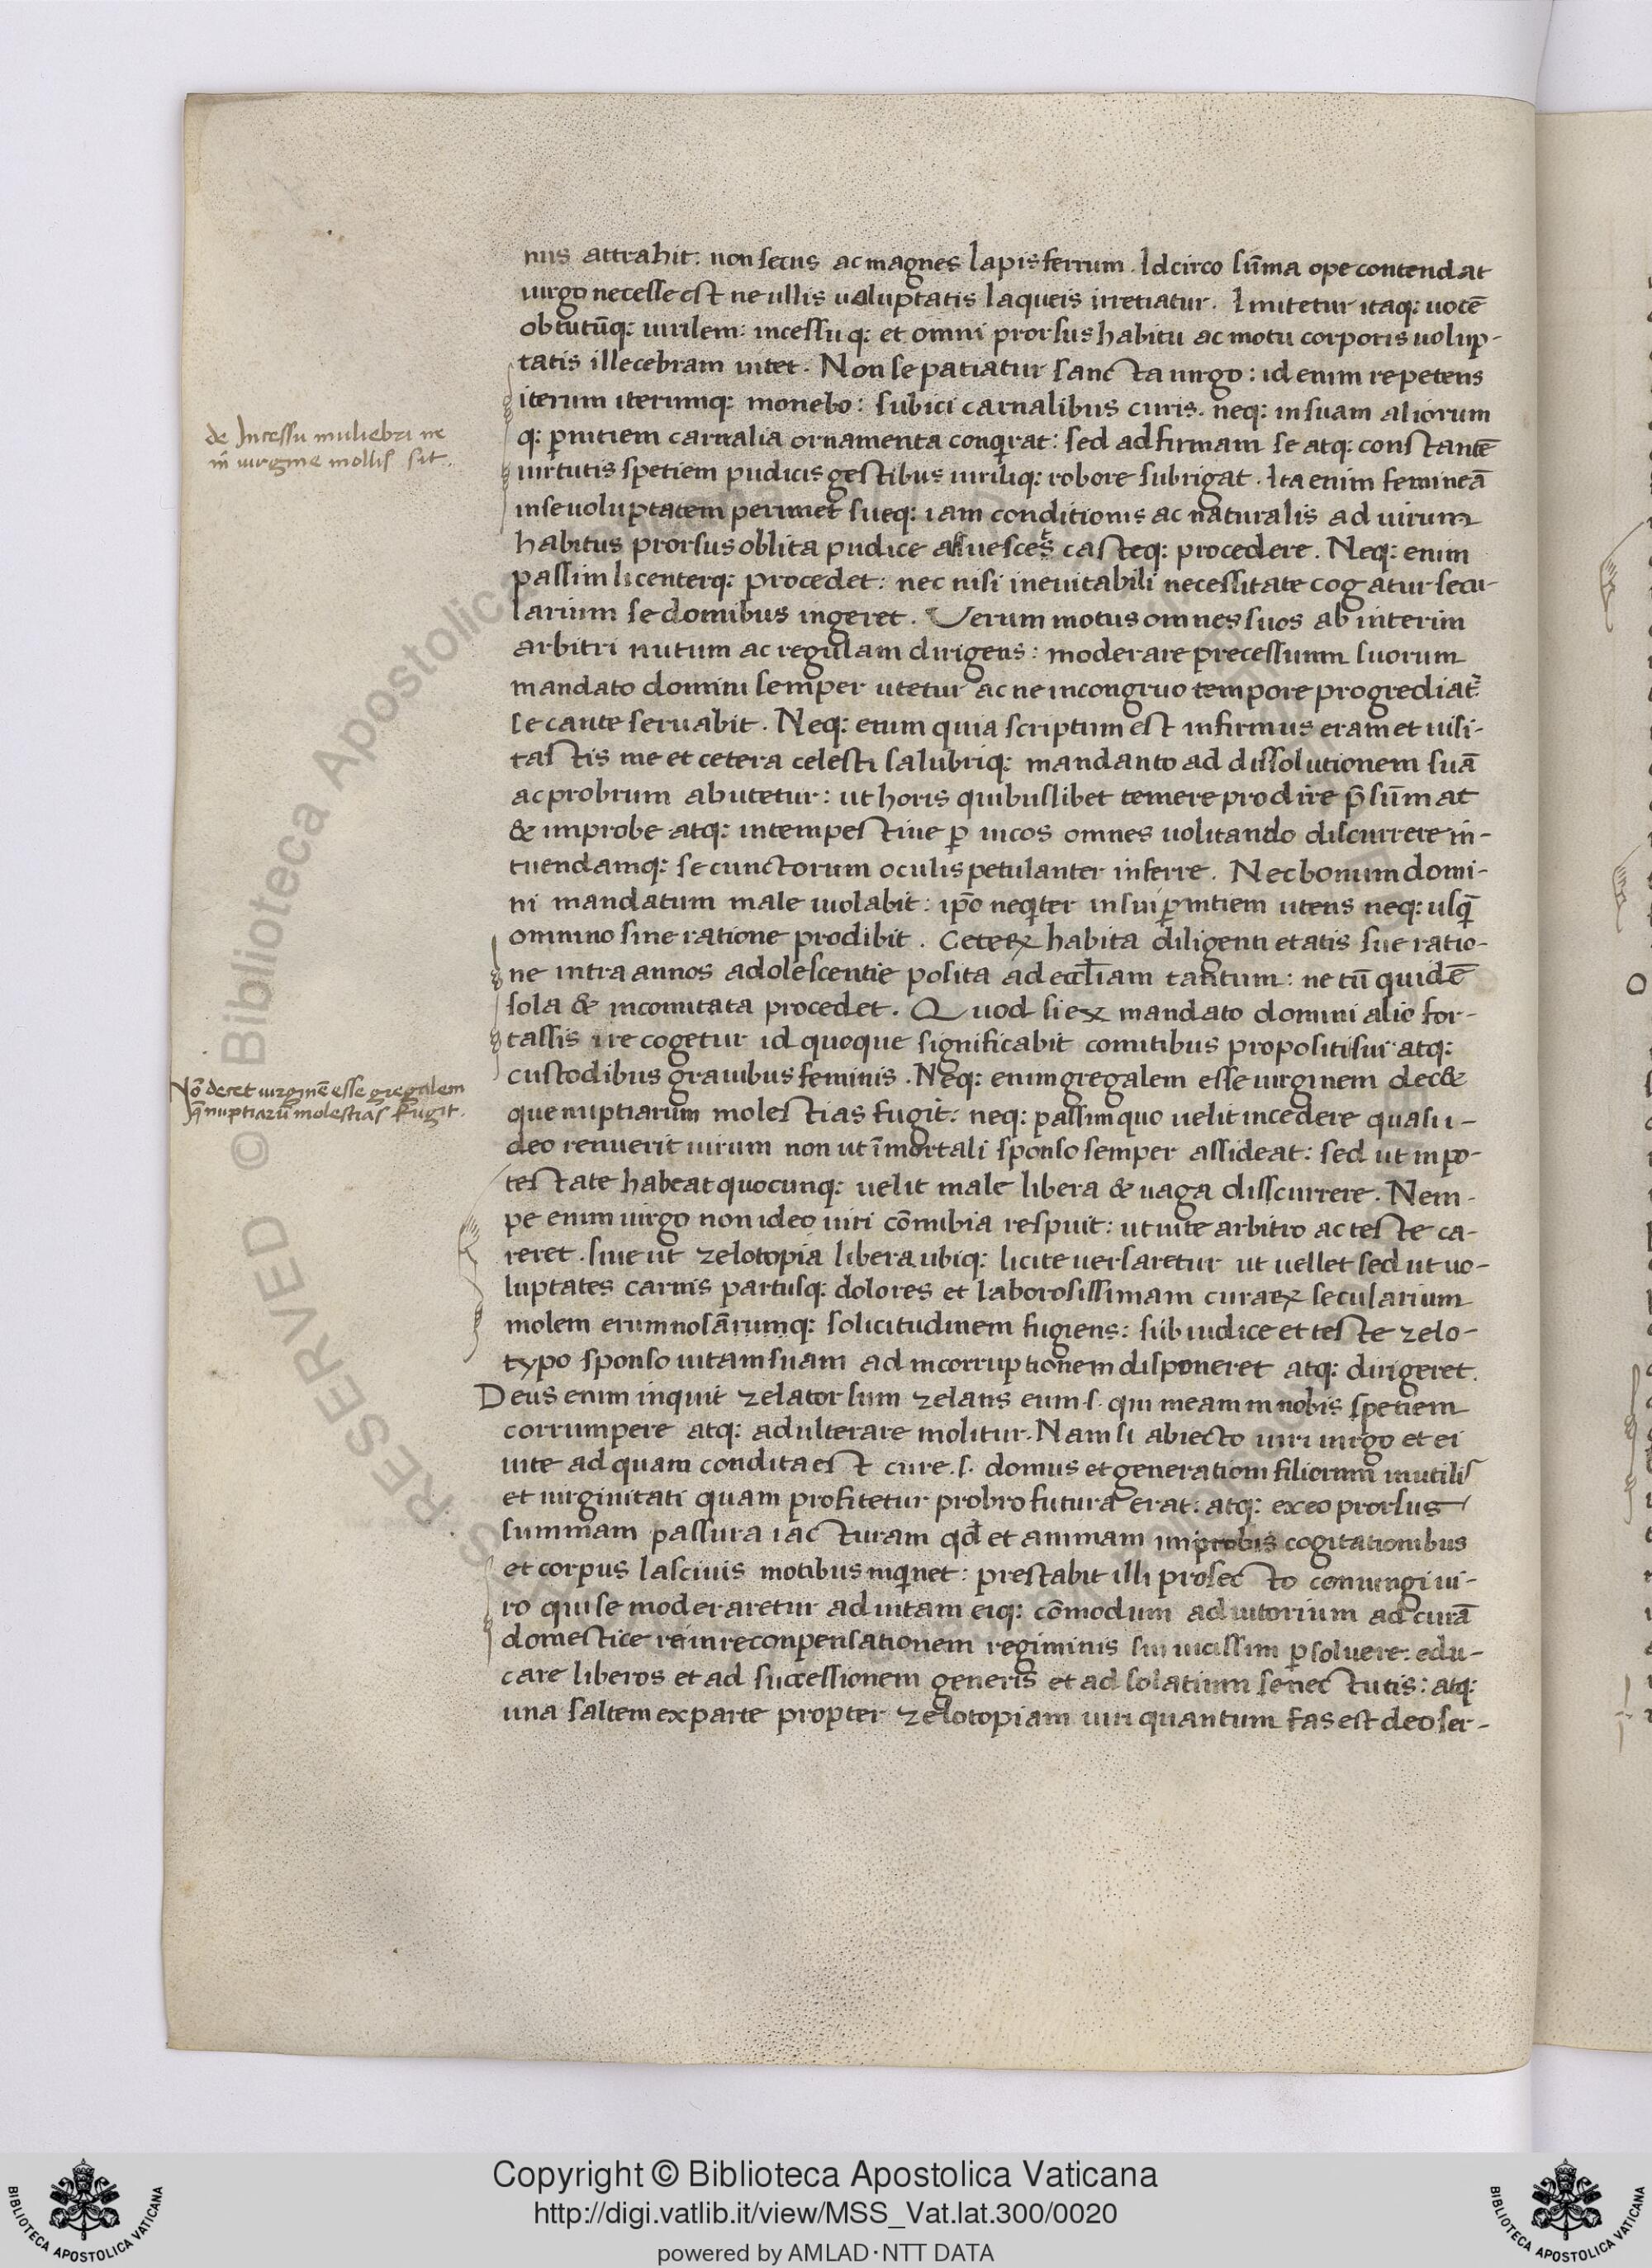 nus attrahit: non secus ac magnes lapis ferrum. Idcirco sum̄a ope contendat
uirgo necesse est ne ullis uoluptatis laqueis irretiatur. Imitetur itaq: uocē
obtutūq: uirilem: incessuq: et omni prorsus habitu ac motu corporis uolup-
tatis illecebram uitet. Non se patiatur sancta uirgo: id enim repetens
iterum iterumq: monebo: subici carnalibus curis. neq: in suam aliorum
q: ꝑnitiem carnalia ornamenta conqrat: sed ad firmam se atq: constantē
uirtutis spetiem pudicis gestibus uiriliq: robore subrigat. Ita enim femineā
in se uoluptatem perimet sueq: iam conditionis ac naturalis ad uirum
habitus prorsus oblita pudice casteq: procedere. Neq: enim
passim licenterq: procedet: nec nisi ineuitabili necessitate cogatur secu-
larium se domibus ingeret. Verum motus omnes suos ab interim
arbitri nutum ac regulam dirigens: moderare precessuum suorum
mandato domini semper utetur ac ne incongruo tempore progrediat̄
se caute seruabit. Neq: enim quia scriptum est infirmus eram et uisi-
tastis me et cetera celesti salubriq: mandanto ad dissolutionem suā
ac probrum abutetur: ut horis quibuslibet temere prodire p̄sumat
& improbe atq: intempestiue ꝑ uicos omnes uolitando discurrere in-
tuendamq: se cunctorum oculis petulanter inferre. Nec bonum domi-
ni mandatum male uiolabit: ip̄o neqter in sui ꝑnitiem utens neq: usq̄
omnino sine ratione prodibit. Ceteꝝ habita diligenti etatis sue ratio-
ne intra annos adolescentie posita ad eccl̄iam tantum: ne tū quidē
sola & incomitata procedet. Quod si ex mandato domini alio for-
tassis ire cogetur id quoque significabit comitibus propositi sui atq:
custodibus grauibus feminis. Neq: enim gregalem esse uirginem dec&
que nuptiarum molestias fugit: neq: passim quo uelit incedere quasi i-
deo renuerit uirum non ut īmortali sponso semper assideat: sed ut in po-
testate habeat quocunq: uelit male libera & uaga disscurrere. Nem-
pe enim uirgo non ideo uiri cōnubia respuit: ut uite arbitro ac teste ca-
reret. siue ut zelotopia libera ubiq: licite uersaretur ut uellet sed ut uo-
luptates carnis partusq: dolores et laborosissimam curaꝝ secularium
molem erumnosārumq: solicitudinem fugiens: sub iudice et teste zelo-
typo sponso uitam suam ad incorruptionem disponeret atq: dirigeret.
Deus enim inquit zelator sum zelans eum .s. qui meam in nobis spetiem
corrumpere atq: adulterare molitur. Nam si abiecto uiri uirgo et ei
uite ad quam condita est cure .s. domus et generationi filiorum inutilis
et uirginitati quam profitetur probro futura erat: atq: ex eo prorsus
summam passura iacturam qd̄ et animam improbis cogitationibus
et corpus lasciuis motibus inqinet: prestabit illi profecto coniungi ui-
ro qui se moderaretur ad uitam eiq: cōmodum adiutorium ad curā
domestice rei in reconpensationem regiminis sui uicissim ꝑsoluere: edu-
care liberos et ad successionem generis et ad solatium senectutis: atq:
una saltem ex parte propter zelotopiam uiri quantum fas est deo ser-
de Incessu muliebri ne
in uirgine mollis sit.
Nō decet uirginē esse gregalem
q̄ nuptiarū molestias fugit.
© Biblioteca Apostolica
RESERVED
Copyright © Biblioteca Apostolica Vaticana
http://digi.vatlib.it/view/MSS_Vat.lat.300/0020
powered by AMLAD·NTT DATA
BIBLIOTECA APOSTOLICA VATICANA
BIBLIOTECA APOSTOLICA VATICANA